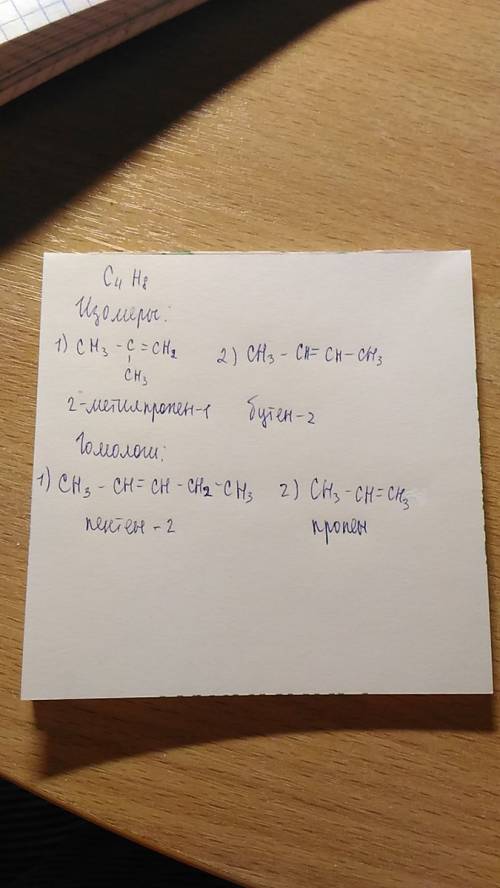 C4 H8
Изомеры:
1) CH3 - C = CH2 2) CH3 - CH = CH - CH3
CH3
2-метилпропен-1 бутен-2
Гомологи:
1) CH3 - CH = CH - CH2 - CH3 2) CH3 - CH = CH3
пентен-2 пропен